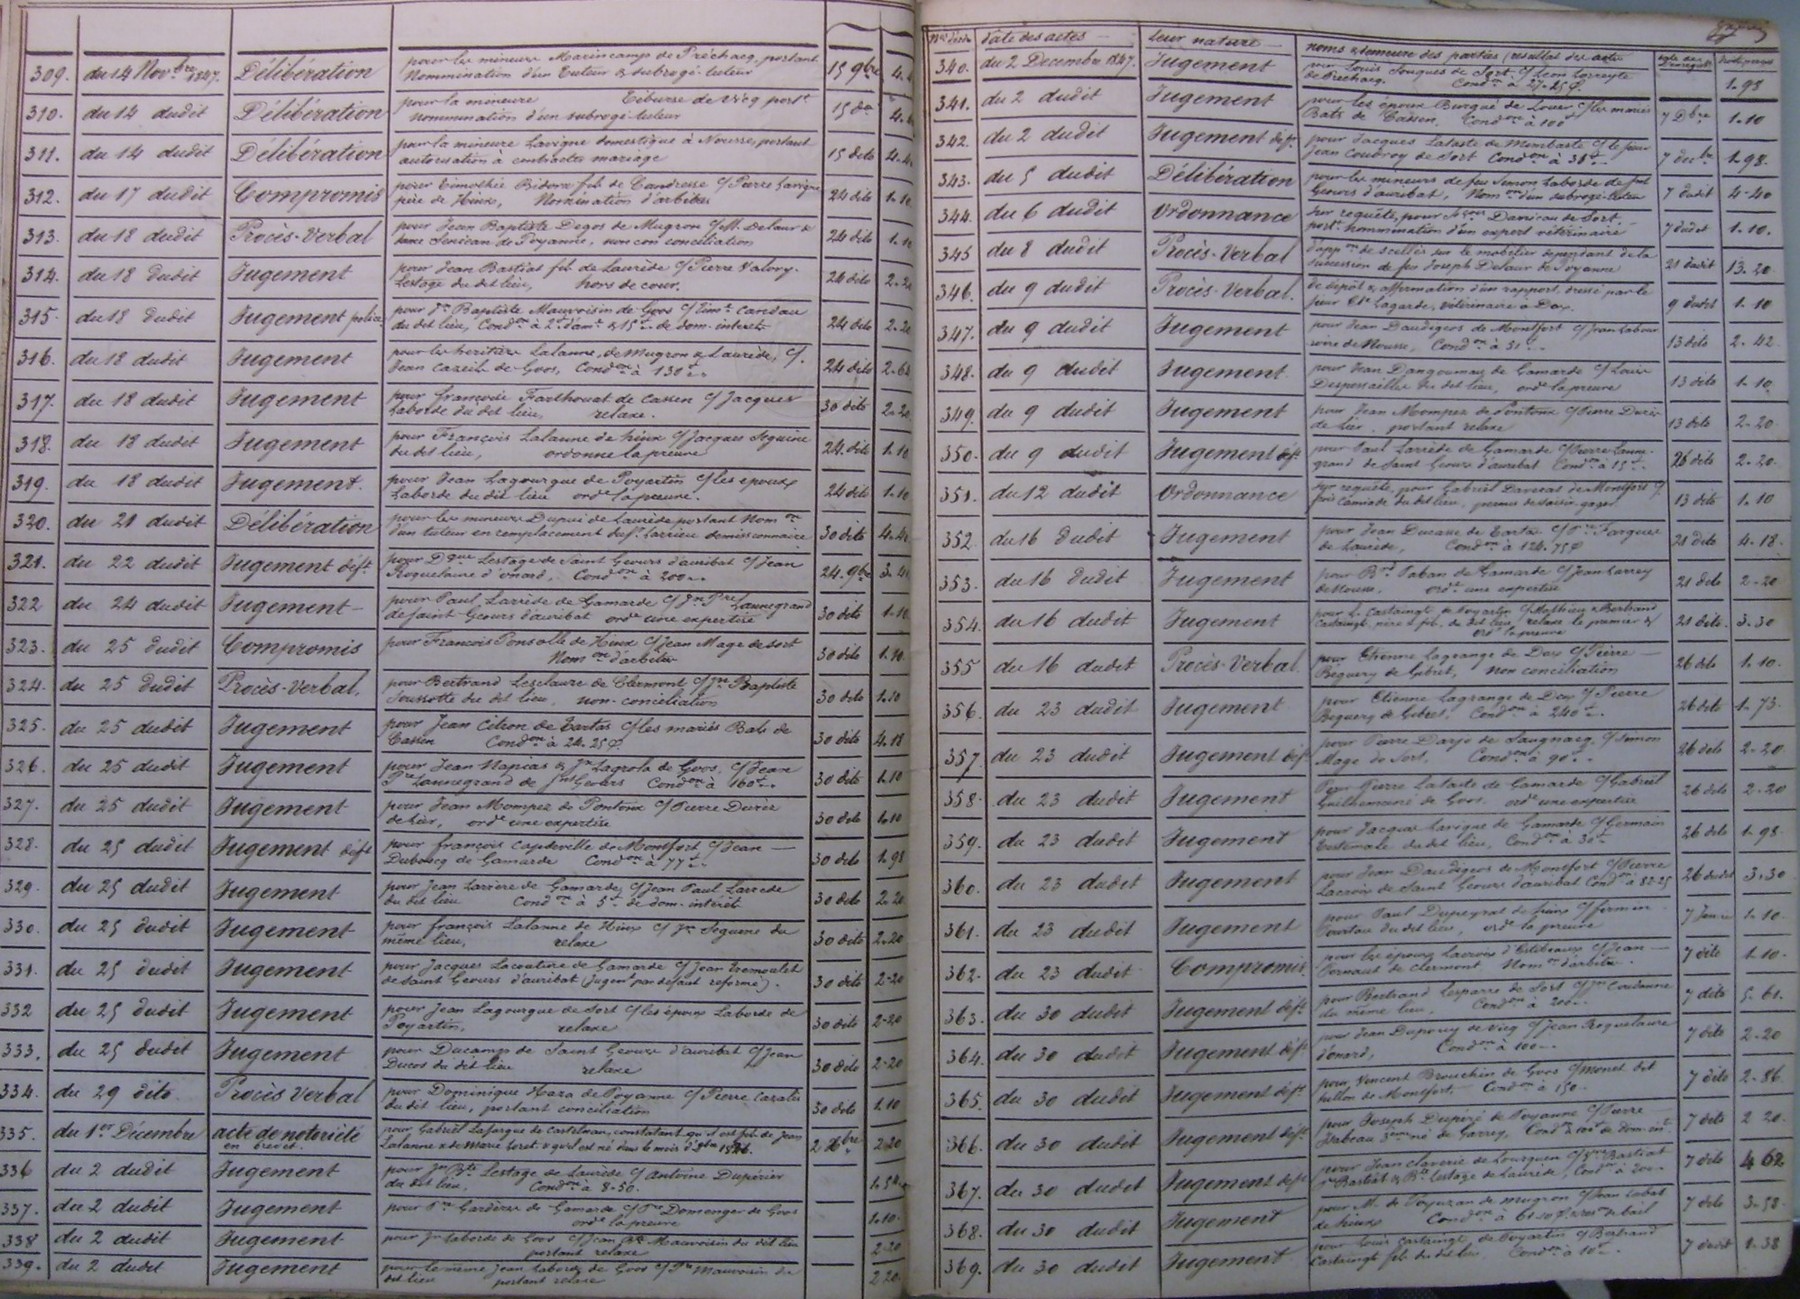 309. du 14 Novbre 1847. Délibération pour les mineurs Marincamps de Préchacq, portant
Nommination d'un tuteur & subrogé-tuteur 15 9bre
310. du 14 dudit Délibération pour la mineure Tiburse de Vicq portt
nommination d'un subrogé-tuteur 15 do
311. du 14 dudit Délibération pour la mineure Lavigne domestique à Nousse, portant
autorisation à contracter mariage 15 dito
312. du 17 dudit Compromis pour Timothée Bidora fils de Candresse c/ Pierre Lavigne
père de Hinx, Nomination d'arbitres 24 dito
313. du 18 dudit Procès-Verbal pour Jean Baptiste Degos de Mugron c/ M. Delaur &
dame de Poyanne, non conciliation 24 dito
314. du 18 dudit Jugement pour Jean Bastiat fils de Laurède c/ Pierre Valery
Lestage du dit lieu, hors de cour. 26 dito
315. du 18 dudit Jugement police pour Jn Baptiste Mauvoisin de Goos c/ Vint Candau
du dit lieu, Condon à 2f d'amde & 15f de dom. interets 24 dito
316. du 18 dudit Jugement pour les heritiers Lalanne, de Mugron & Laurède, c/
Jean Cazeil de Goos, Condon à 130f 24 dito
317. du 18 dudit Jugement pour françoise Farthouat de Cassen c/ Jacques
Laborde du dit lieu, relaxe. 30 dito
318. du 18 dudit Jugement pour François Lalanne de hinx c/ Jacques Seguine
du dit lieu, ordonne la preuve 24 dito 1.10
319. du 18 dudit Jugement. pour Jean Lagourgue de Poyartin c/ les époux
Laborde du dit lieu ord la preuve. 24 dito 1.10
320. du 21 dudit Délibération pour les mineurs Dupuis de Laurède portant Nomon
d'un tuteur en remplacement du sr Larrieu demissionnaire 30 dito
321. du 22 dudit Jugement déft pour Dque Lestage de Saint Geours d'auribat c/ Jean
Roquelaure d'onard, Condon à 200 24. 9bre
322 du 24 dudit Jugement pour Paul Larrède de Gamarde c/ Jn Pre Lannegrand
de saint Geours d'auribat ord une expertise 30 dito 1.10
323. du 25 dudit Compromis pour Francois Ponsolle de Hinx c/ Jean Mage de sort
Nomon d'arbitre 30 dito 1.10
324. du 25 dudit Procès-Verbal. pour Bertrand Lesclaure de Clermont c/ Jn Baptiste
Soussotte du dit lieu, non-conciliation 30 dito 1.10
325. du 25 dudit Jugement pour Jean Citron de Tartas c/ les mariés Bats de
Cassen Condon à 24.25 c. 30 dito 4.18
326. du 25 dudit Jugement pour Jean Napias & Jn Lagrola de Goos, c/ Jean
Pre Lannegrand de St Geours Condon à 160f 30 dito 1.10
327. du 25 dudit Jugement pour Jean Mompez de Pontonx c/ Pierre Duris
de lier, ord une expertise 30 dito 1.10
328. du 25 dudit Jugement déft pour françois Capdeville de Montfort c/ Jean
Dubourg de Gamarde Condon à 77f 30 dito 1.98
329. du 25 dudit Jugement pour Jean Larrère de Gamarde, c/ Jean Paul Larrede
du dit lieu Condon à 5f de dom. intérêt 30 dito 2.20
330. du 25 dudit Jugement pour françois Lalanne de Hinx c/ Jn Seguine du
même lieu, relaxe 30 dito 2.20
331. du 25 dudit Jugement pour Jacques Lacouture de Gamarde c/ Jean Tremoulet
de Saint Geours d'auribat (Jugemt par défaut reformé). 30 dito 2-20
332 du 25 dudit Jugement pour Jean Lagourgue de Sort c/ les époux Laborde de
Poyartin, relaxe 30 dito 2-20
333. du 25 dudit Jugement pour Ducamps de Saint Geours d'auribat c/ Jean
Ducos du dit lieu relaxe 30 dito 2-20
334. du 29 dito Procès Verbal pour Dominique Haza de Poyanne c/ Pierre Cazalis
du dit lieu, portant conciliation 30 dito 1.10
335. du 1er Décembre acte de notoriété
en brevet. pour Gabriel Lafargue de Castelnau, constatant qu'il est fils de Jean
Lalanne & de Marie Loret & qu'il est né dans le mois d' 1826. 2 Xbre 2.20
336 du 2 dudit Jugement pour Jn Bte Lestage de Laurède c/ Antoine Dupérier
du dit lieu, Condon à 8-50.
337. du 2 dudit Jugement pour Gardères de Gamarde c/ Domenger de Goos
ord la preuve 1.10.
338 du 2 dudit Jugement pour Jn Laborde de Goos c/ Jean Bte Mauvoisin du dit lieu
portant relaxe 2.20
339. du 2 dudit Jugement pour le même Jean Laborde de Goos c/ Mauvoisin du
dit lieu portant relaxe 2.20.
date des actes leur nature noms & demeure des parties (resultat des actes
340. du 2 Decembre 1847. Jugement pour Louis Jouques de Sort c/ Leon Lorreyte
de Préchacq Condon à 27.25 c. 1.98
341. du 2 dudit Jugement pour les époux Burgué de Louer c/ les mariés
Bats de Cassen, Condon à 100f 7 Dbre 1.10
342. du 2 dudit Jugement déft. pour Jacques Lataste de Mimbaste c/ le sieur
Jean Coudroy de Sort Condon à 38f 7 decbre 1.98.
343. du 5 dudit Délibération pour les mineurs de feu Simon Laborde de St
Geours d'auribat, Nomon d'un subrogé-tuteur 7 dudit 4-40
344. du 6 dudit Ordonnance sur requête, pour Darricau de Sort,
portt nommination d'un expert vétérinaire 7 dudit 1.10.
345 du 8 dudit Procès-Verbal d'appon de scellés sur le mobilier dependant de la
succession de feu Joseph Delaur de Poyanne 21 dudit 13.20
346. du 9 dudit Procès-Verbal. de dépôt & affirmation d'un rapport dressé par le
sieur Lagarde, vétérinaire à Dax. 9 dudit 1.10
347. du 9 dudit Jugement pour Jean Daudigeos de Montfort c/ Jean Labour
de Nousse, Condon à 31f 13 dito 2.42
348. du 9 dudit Jugement pour Jean Dangoumau de Gamarde c/ Louis
Despersailles du dit lieu, ord la preuve 13 dito 1.10
349. du 9 dudit Jugement pour Jean Mompez de Pontonx c/ Pierre Duris
de lier, portant relaxe 13 dito 2-20
350. du 9 dudit Jugement déft. pour Paul Larrède de Gamarde c/ Pierre Lanne-
grand de Saint Geours d'auribat Condon à 15f 26 dito 2.20.
351. du 12 dudit Ordonnance sur requête, pour Gabriel de Montfort c/
Camiade du dit lieu, permis de saisir-gager 13 dito 1.10
352. du 16 dudit Jugement pour Jean Ducasse de Tartas c/ Farguer
de Laurède, Condon à 124.75 c 21 dito 4.18.
353. du 16 dudit Jugement pour Bd Taban de Gamarde c/ Jean Larrey
de Nousse, ord une expertise 21 dito 2-20
354. du 16 dudit Jugement pour L. Castaingt de Poyartin c/ Mathieu & Bertrand
Castaingt, père & fils, du dit lieu, relaxe le premier &
ord la preuve 21 dito. 3.30
355 du 16 dudit Procès-Verbal pour Etienne Lagrange de Dax c/ Pierre
Béguery de Gibret, Non conciliation 26 dito 1.10.
356. du 23 dudit Jugement pour Etienne Lagrange de Dax c/ Pierre
Béguery de Gibret, Condon à 240f 26 dito 1.73.
357. du 23 dudit Jugement déft pour Pierre Darjo de Saugnacq c/ Simon
Mage de Sort, Condon à 90f 26 dito 2-20
358. du 23 dudit Jugement Pour Pierre Lataste de Gamarde c/ Gabriel
Guilhemané de Goos, ord une expertise 26 dito 2-20
359. du 23 dudit Jugement pour Jacques Lavigne de Gamarde c/ Germain
du dit lieu, Condon à 30f 26 dito 1.98.
360. du 23 dudit Jugement pour Jean Daudigeos de Montfort c/ Pierre
Lacroix de Saint Geours d'auribat Condon à 82-25 26 dudit 3.30
361. du 23 dudit Jugement pour Paul Dupeyrat de hinx c/ firmin
du dit lieu, ord la preuve 7 Janvr 1.10.
362. du 23 dudit Compromis. pour les époux Lacroix d' c/ Jean
Dornaut de Clermont Nomon d'arbitre. 7 dito 1.10.
363. du 30 dudit Jugement déft. pour Bertrand Lesparre de Sort c/ Jn Coudanne
du même lieu, Condon à 200 7 dito 5.61.
364. du 30 dudit Jugement déft pour Jean Dupouy de Vicq c/ Jean Roquelaure
d'onard, Condon à 100 7 dito 2-20
365. du 30 dudit Jugement déft. pour Vincent Brouchin de Goos c/ Monet dit
de Montfort, Condon à 150 7 dito 2.86
366. du 30 dudit Jugement déft. pour Joseph Dupiré de Poyanne c/ Pierre
Isabeau de Garrey, Condon à 20f de dom. int. 7 dito 2 20.
367. du 30 dudit Jugement déft pour Jean Claverie de Lourquen c/ Bastiat
Bastiat & Bte Lestage de Laurède, Condon à 200 7 dito 4 62
368. du 30 dudit Jugement pour M. de Poyuzan de Mugron c/ Jean Labat
de hinx Condon à 61.20 de bail 7 dito 3-58.
369. du 30 dudit Jugement pour Louis Castaingt, de Poyartin c/ Bertrand
Castaingt fils du dit lieu, Condon à 10f 7 dudit 1.38